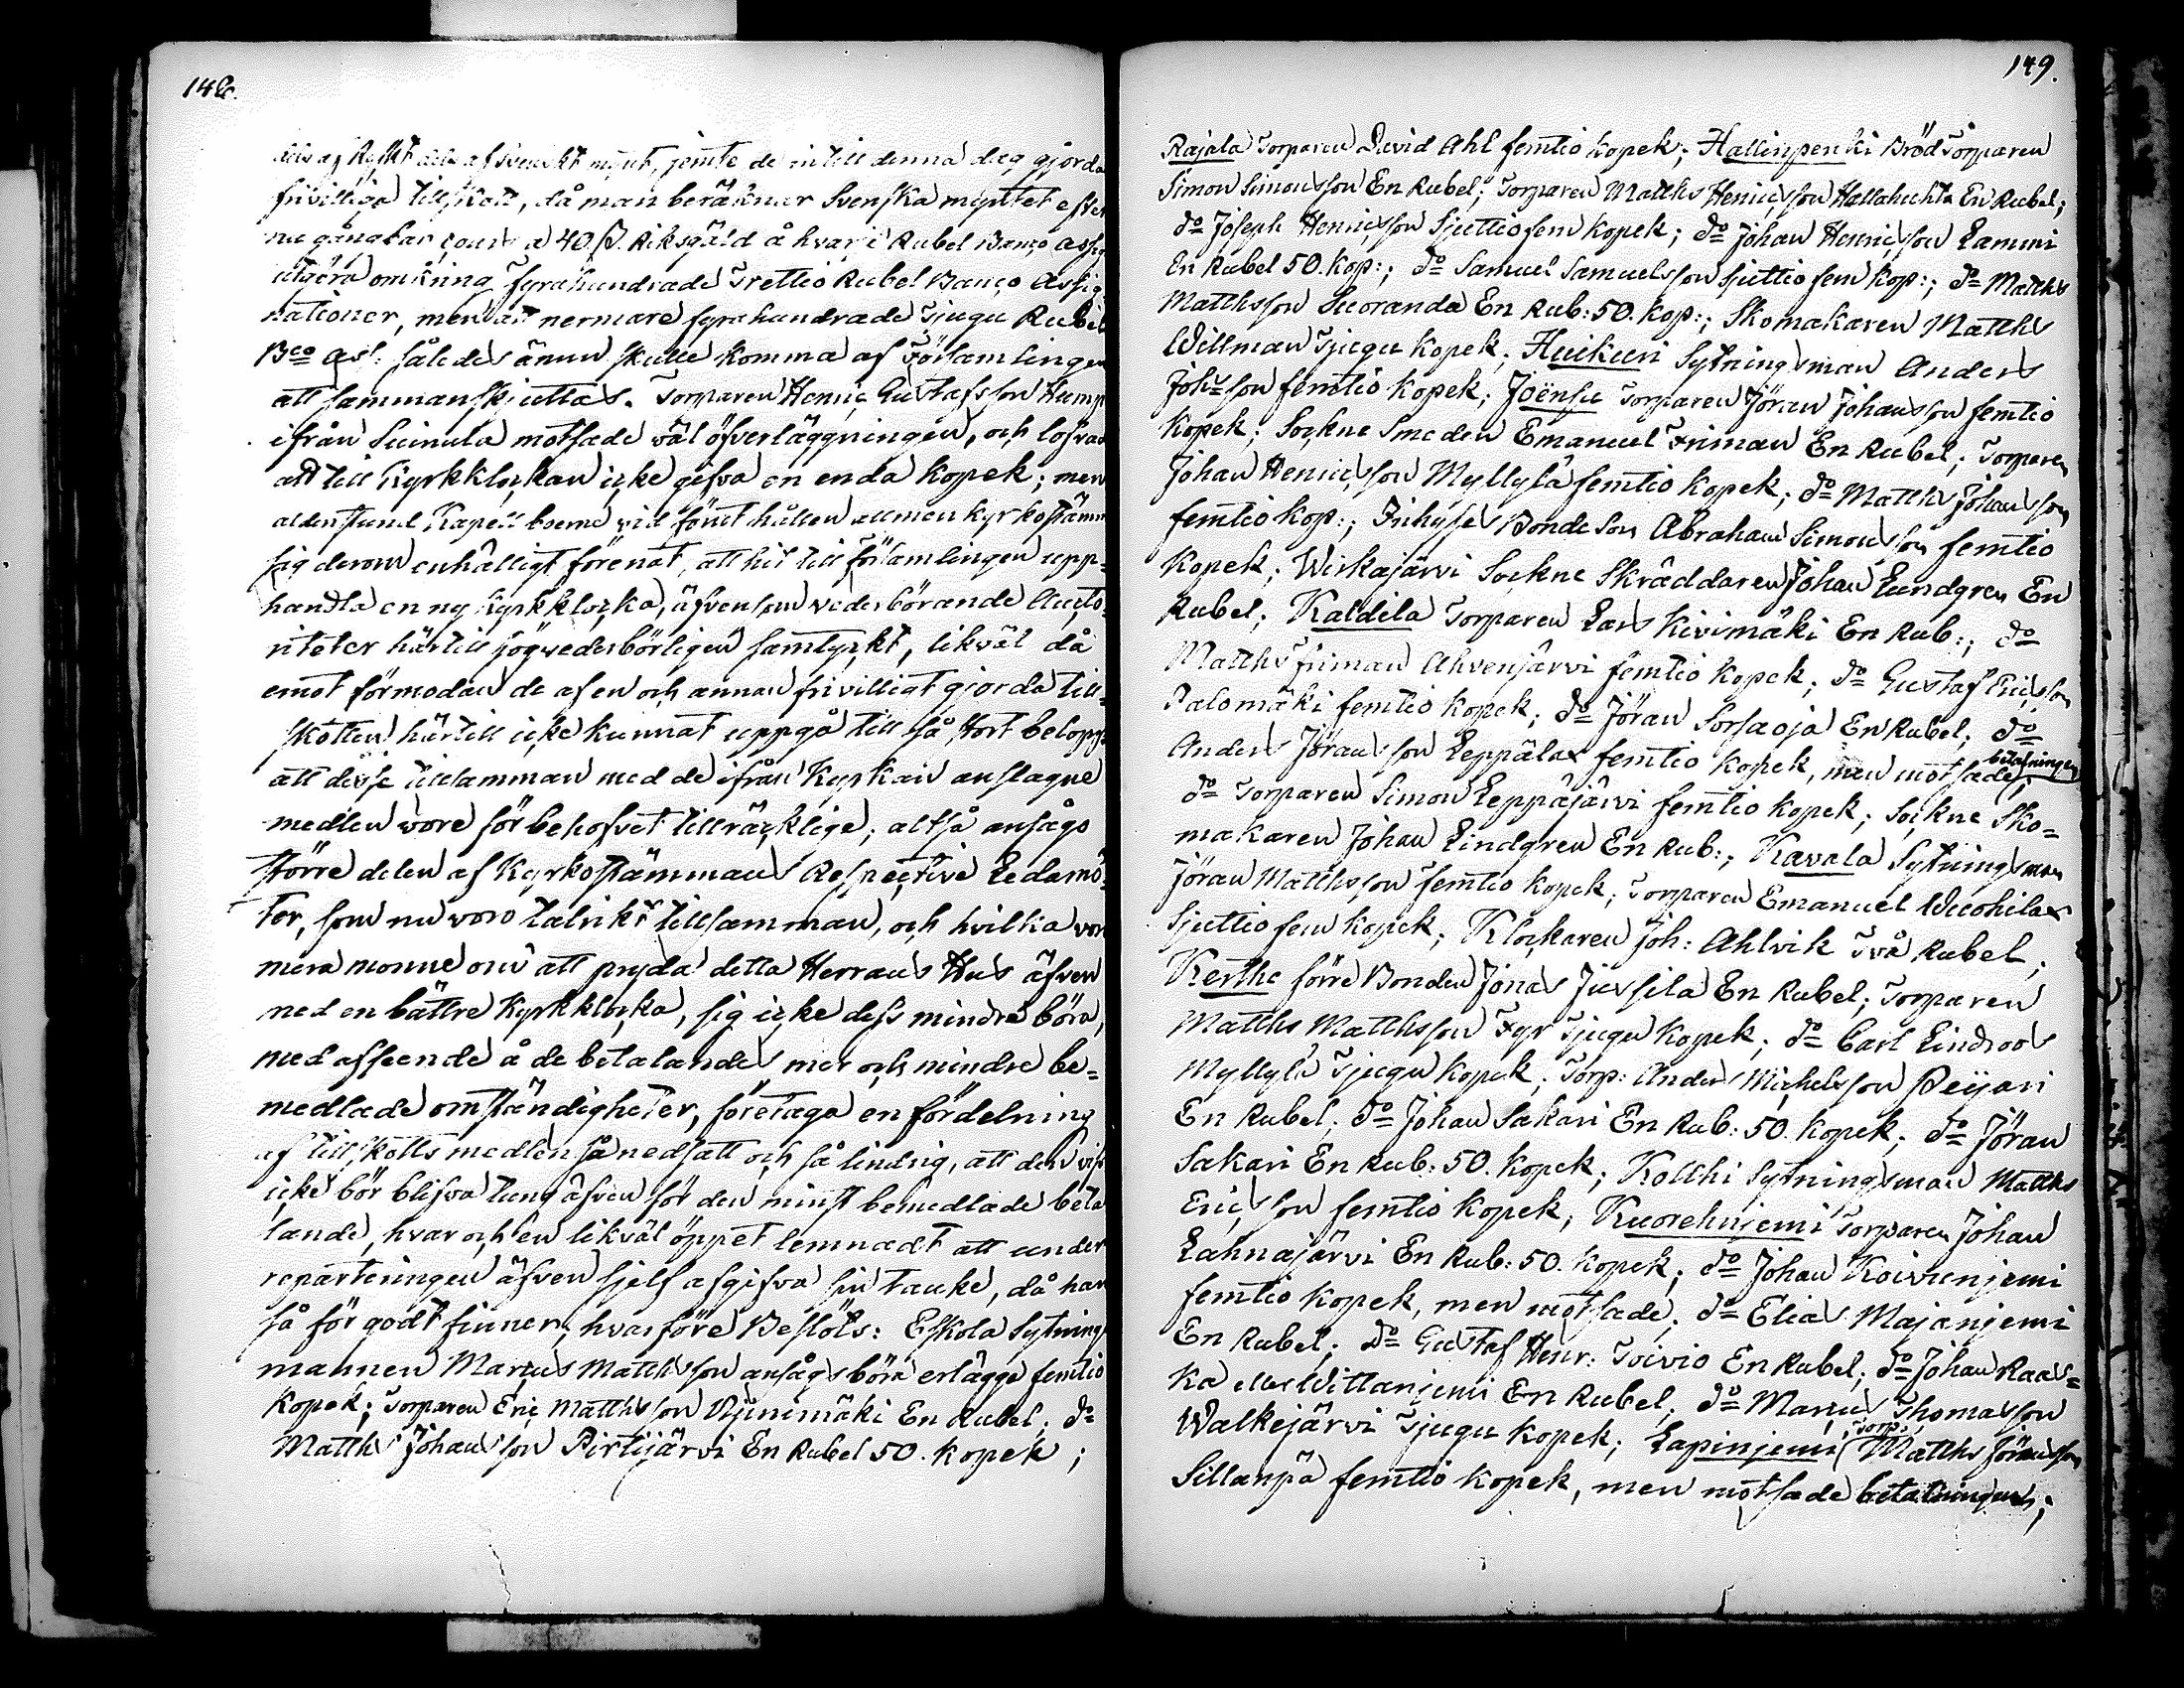 148.
dels af Ryskt dels af Svenskt mynt, jemte de intill denna dag gjorda
frivilliga tillskott, då man beräknar Svenska myntet efter
nu gångbar cours a 40. ß. Riksgäld å hvarje Rubel Banco Assig
utgöra omkring fyrahundrade Trettio Rubel Banco Assig
nationer, men att nermare fyra hundrade Tjugu Rubel
Bco ass: således ännu skulle komma af Församlingen
att sammanskjuttas. Torparen Henric Gustafsson Hump
ifrån Suinula motsade wäl öfverläggningen, och lofvad
att till Kyrkklockan icke gifva en enda Kopek; men
aldenstund Kapellboerne vid förut hållen allmen kyrkostämm
sig derom enhälligt förenat, att hit till församlingen upp=
handla en ny Kyrkklocka, äfvensom vederbörande Aucto=
riteter härtill högvederbörligen samtyckt, likväl då
emot förmodan de af en och annan frivilligt gjorda till=
skotten härtill icke kunnat uppgå till så stort belopp,
att desse tillsamman med de ifrån Kyrkan anslagne
medlen wore för behofvet tillräcklige; altså ansågo
större delen af Kyrkostämmans Respective Ledamö=
ter, som nu woro talrikt tillsamman, och hvilka voro
mera monne om att pryda detta Herrans Hus äfven
med en bättre Kyrkklocka, sig icke dess mindre böra,
med afseende å de betalandes mer och mindre be=
medlade omständigheter, företaga en fördelning
af tillskotts medlen så nedsatt och så lindrig, att den viss
icke bör blifva tung äfven för den minst bemedlade beta
lande, hvar och en likväl öppet lemnadt att under
reparteringen äfven sjelf afgifva sin tanke, då han
så för godt finner, hvarföre Beslöts: Eskola Sytnings
mannen Marcus Matthsson ansågs böra erlägga femtio
Kopek; Torparen Eric Matthsson Nynimäki En Rubel; do
Matths Johansson Pirttijärvi En Rubel 50. Kopek;
149.
Rajala Torparen David Ahl femtio Kopek; Hallinpenki Bröd Torparen
Simon Simonsson En Rubel; Torparen Matths Henricsson Hallahuhta En Rubel;
do Joseph Henricsson Sjuttiofem Kopek; do Johan Henricsson Lammi
En Rubel 50. Kop:; do Samuel Samuelsson Sjuttiofem Kop:; do Matths
Matthsson Suoranda En Rub: 50. Kop:; Skomakaren Matths
Willman Tjugu Kopek; Huikuri Sytningsman Anders
Johsson femtio Kopek; Joënsu Torparen Jöran Johansson femtio
Kopek; Sockne Smeden Emanuel Friman En Rubel; Torparen
Johan Henricsson Myllylä femtio Kopek; do Matths Johansson
femtio Kop:; Inhyses Bonde Son Abraham Simonsson femtio
Kopek; Wirkajärvi Sockne Skräddaren Johan Lundgren En
Rubel; Kaldila Torparen Lars Kivimäki En Rub:; do
Matths Friman Ahvenjärvi femtio Kopek; do Gustaf Ericsson
Palomäki femtio Kopek; do Jöran Sorsaoja En Rubel; do
Anders Jöransson Leppälax femtio Kopek, men motsade betalningen
do Torparen Simon Leppäjärvi femtio Kopek; Sockne Sko=
makaren Johan Lindgren En Rub:; Kavala Sytningsman
Jöran Matthsson femtio Kopek; Torparen Emanuel Wuohilax
Sjuttiofem Kopek; Klockaren Joh: Ahlvik Två Rubel;
Kerthe förre Bonden Jonas Jussila En Rubel; Torparen
Matths Matthsson Fyr Tjugu Kopek; do Carl Lindroos
Myllylä Tjugu Kopek; Torp: Anders Michelsson Peijari
En Rubel; do Johan Sakari En Rub: 50. Kopek; do Jöran
Sakari En Rub: 50. Kopek; Kolkki Sytningsman Matths
Ericsson femtio Kopek; Kuorehnjemi Torparen Johan
Lahnajärvi En Rub: 50. Kopek; do Johan Koivunjemi
femtio Kopek, men motsade; do Elias Majanjemi
En Rubel; do Gustaf Henr: Toivio En Rubel; do Johan Raas=
ka eller Wittanjemi En Rubel; do Marcus Thomasson
Walkejärvi Tjugu Kopek; Lapinjemi Torp: Matths Jöransson
Sillanpä femtio Kopek, men motsade betalningen;